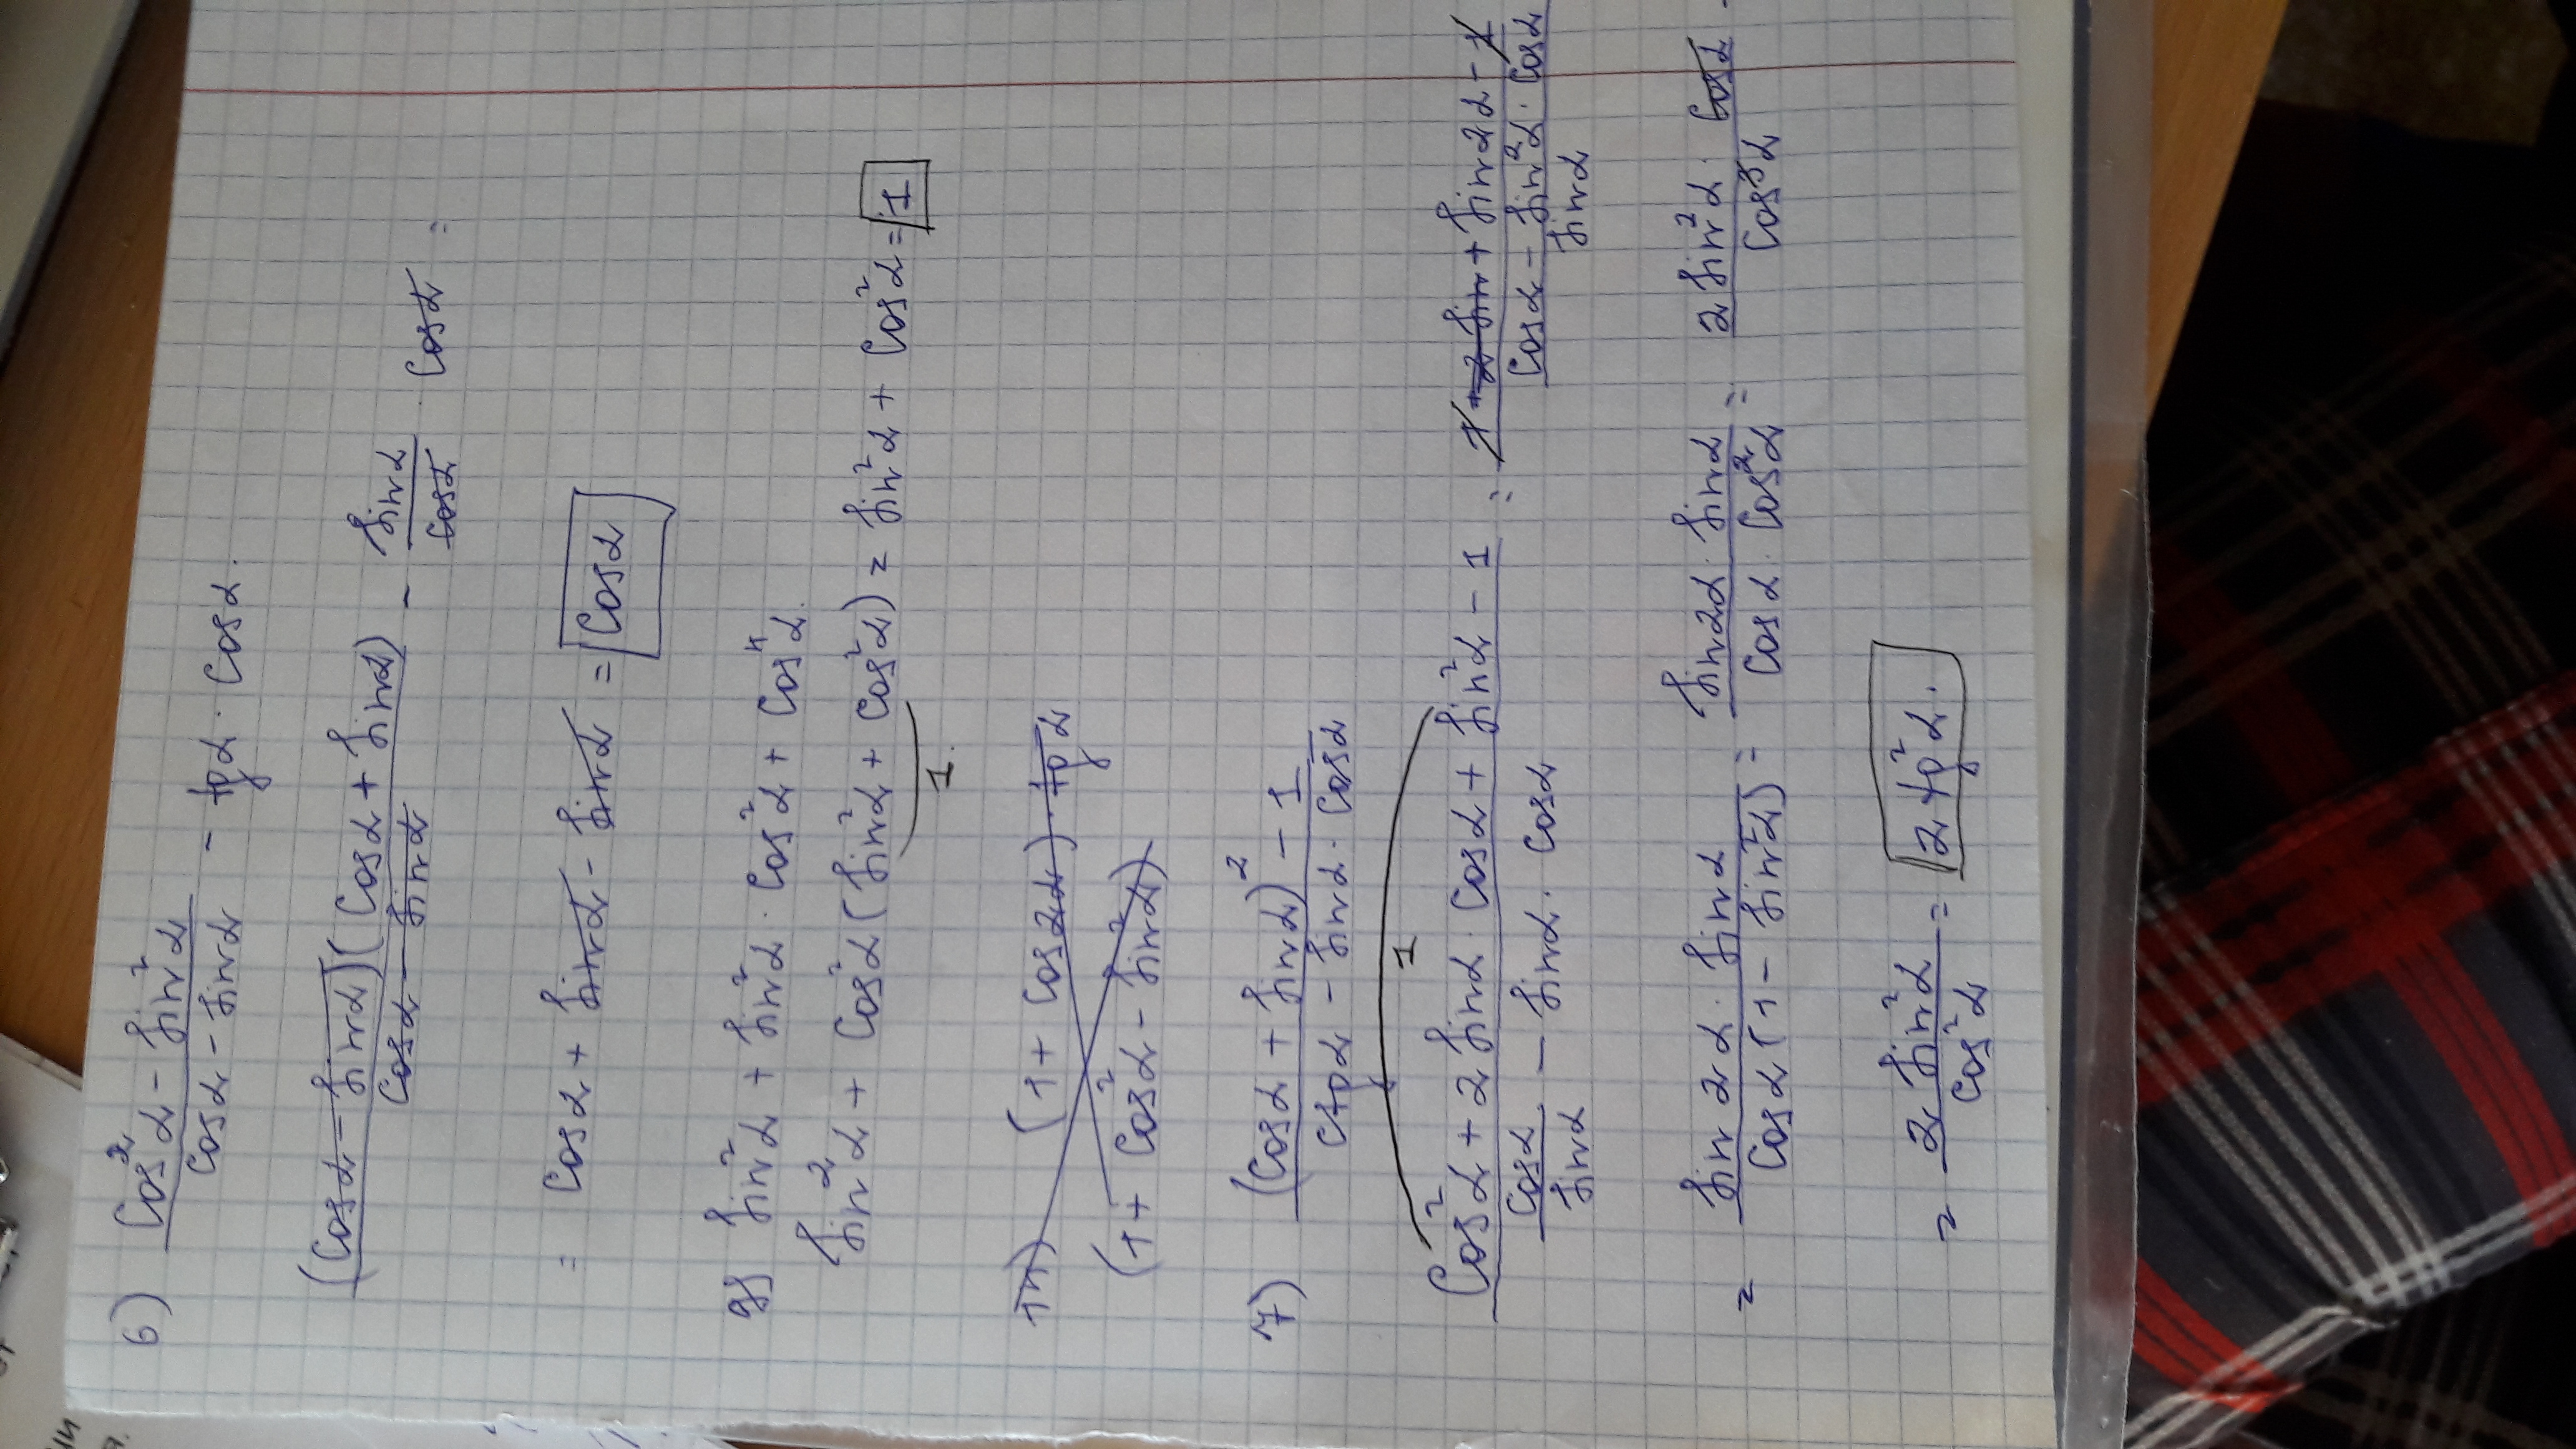 6) (cos²α - sin²α)/(cosα - sinα) - tgα · cosα.
(cosα - sinα)(cosα + sinα)/(cosα - sinα) - sinα/cosα · cosα =
= cosα + sinα - sinα = cosα
sin²α + sin²α · cos²α + cos⁴α.
sin²α + cos²α (sin²α + cos²α) = sin²α + cos²α = 1
1.
(1 + cos2α) · tgα
(1 + cos²α - sin²α)
7) ((cosα + sinα)² - 1)/(ctgα - sinα · cosα)
1
(cos²α + 2 sinα · cosα + sin²α - 1)/(cosα/sinα - sinα · cosα) = (1 + 2 sin + sin2α - 1)/((cosα - sin²α · cosα)/sinα)
= (sin2α · sinα)/(cosα (1 - sin²α)) = (sin2α · sinα)/(cosα · cos²α) = (2 sin²α · cosα)/(cos³α)
= (2 sin²α)/(cos²α) = 2 tg²α.